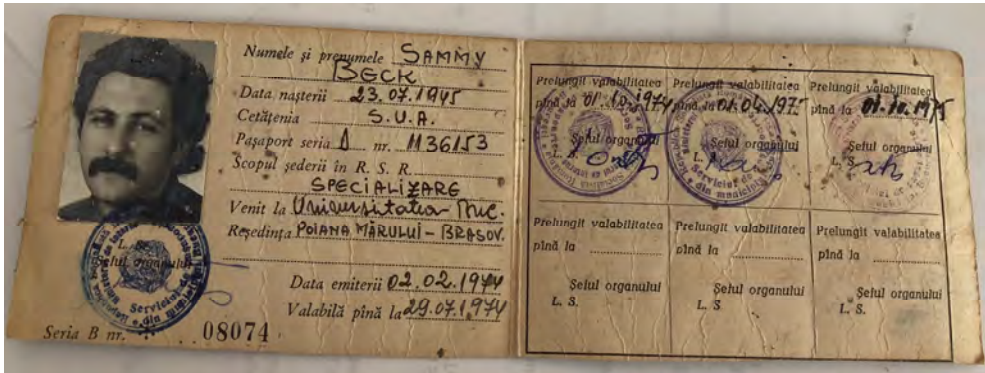 Numele și prenumele SAMMY
BECK
Data nașterii 23.07.1945
Cetățenia S.U.A.
Pașaport seria nr. 1136153
Scopul șederii în R. S. R.
SPECIALIZARE
Venit la Universitatea
Reședința POIANA MĂRULUI - BRAȘOV.
Data emiterii 02.02.1974
Valabilă pînă la 29.07.1974
L. S.
Șeful organului
Seria B nr. 08074
Prelungit valabilitatea
pînă la 01.10.1974
Șeful organului
L. S.
Prelungit valabilitatea
pînă la 01.04.1975
Șeful organului
L. S.
Prelungit valabilitatea
pînă la 01.10.1975
Șeful organului
L. S.
Prelungit valabilitatea
pînă la
Șeful organului
L. S.
Prelungit valabilitatea
pînă la
Șeful organului
L. S
Prelungit valabilitatea
pînă la
Șeful organului
L. S.